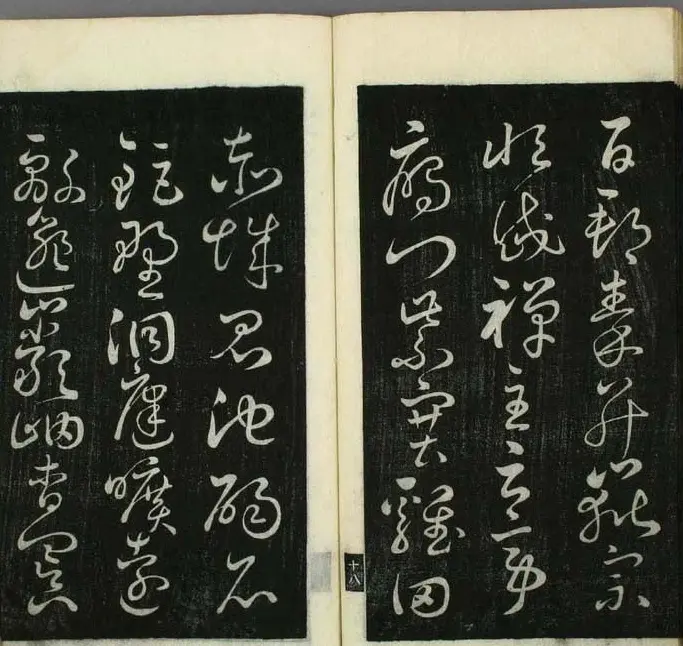 百郡秦并嶽宗
恒岱禪主云亭
鴈門紫塞雞田
十八
赤城昆池碣石
鉅野洞庭曠遠
緜邈巖岫杳冥